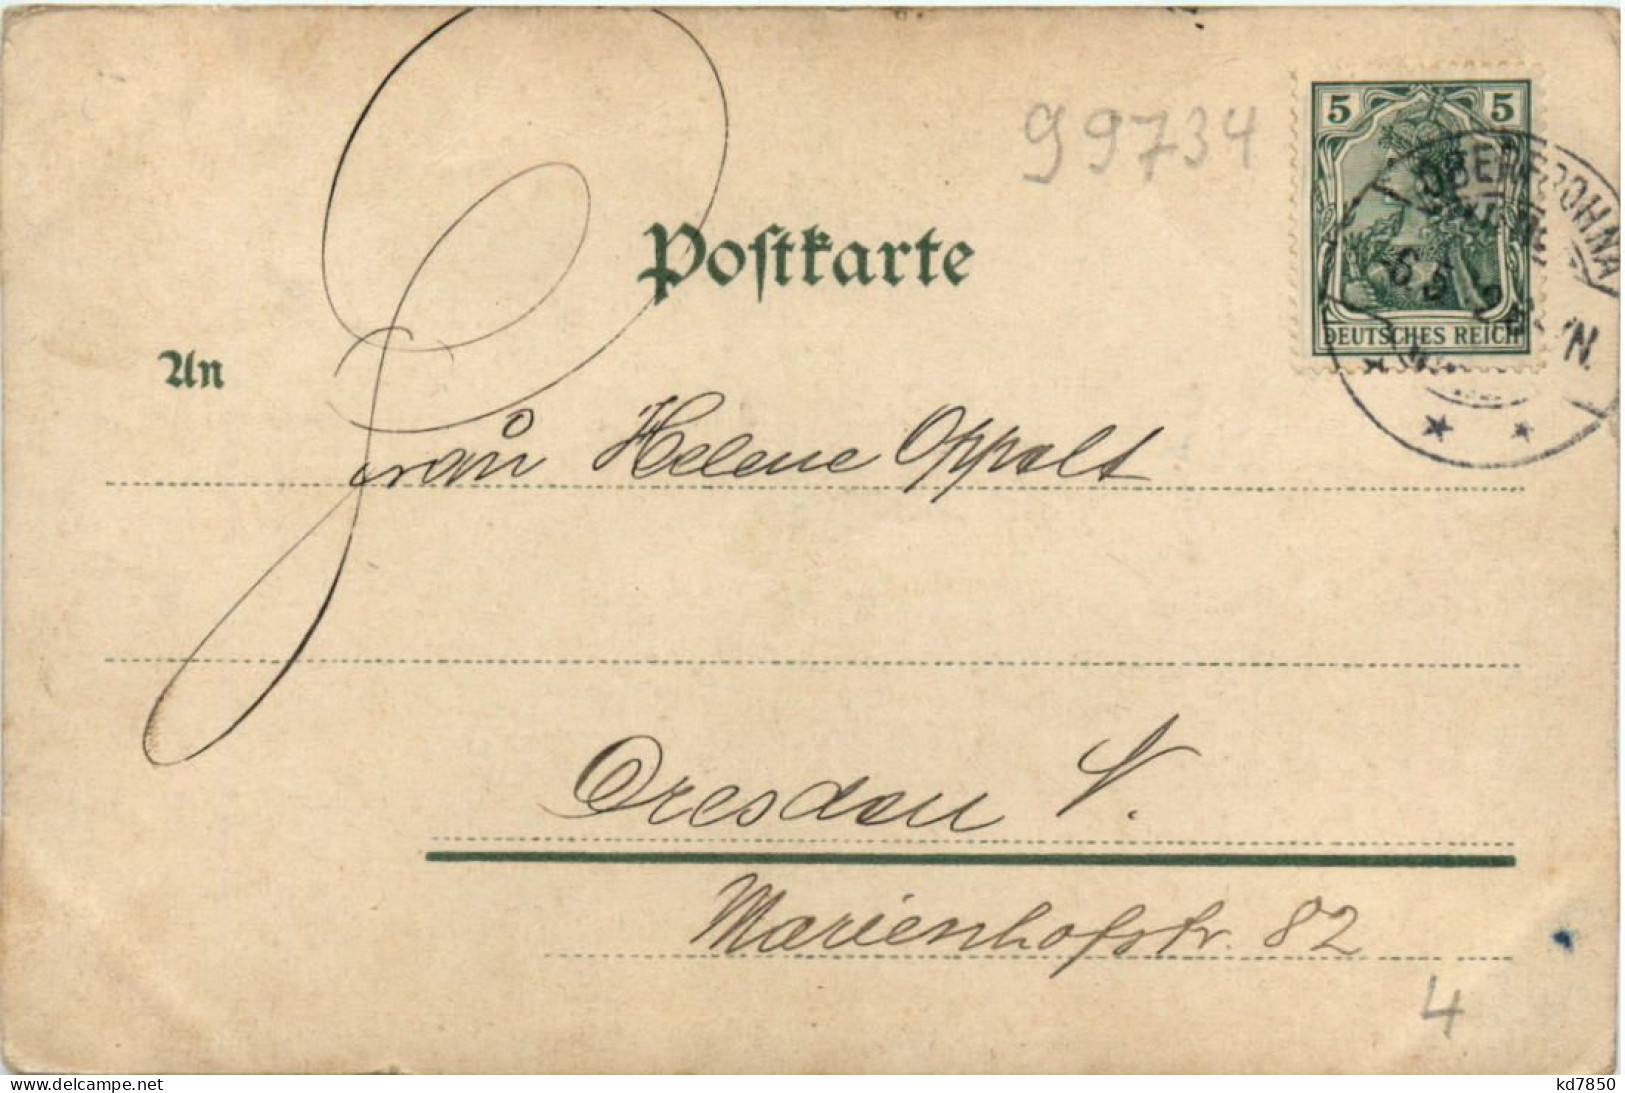 99734
5 5
DEUTSCHES REICH
OBERFROHNA
Postkarte
An
Frau Helene Oppelt
Dresden N.
Marienhofstr. 82
4
www.delcampe.net
kd7850